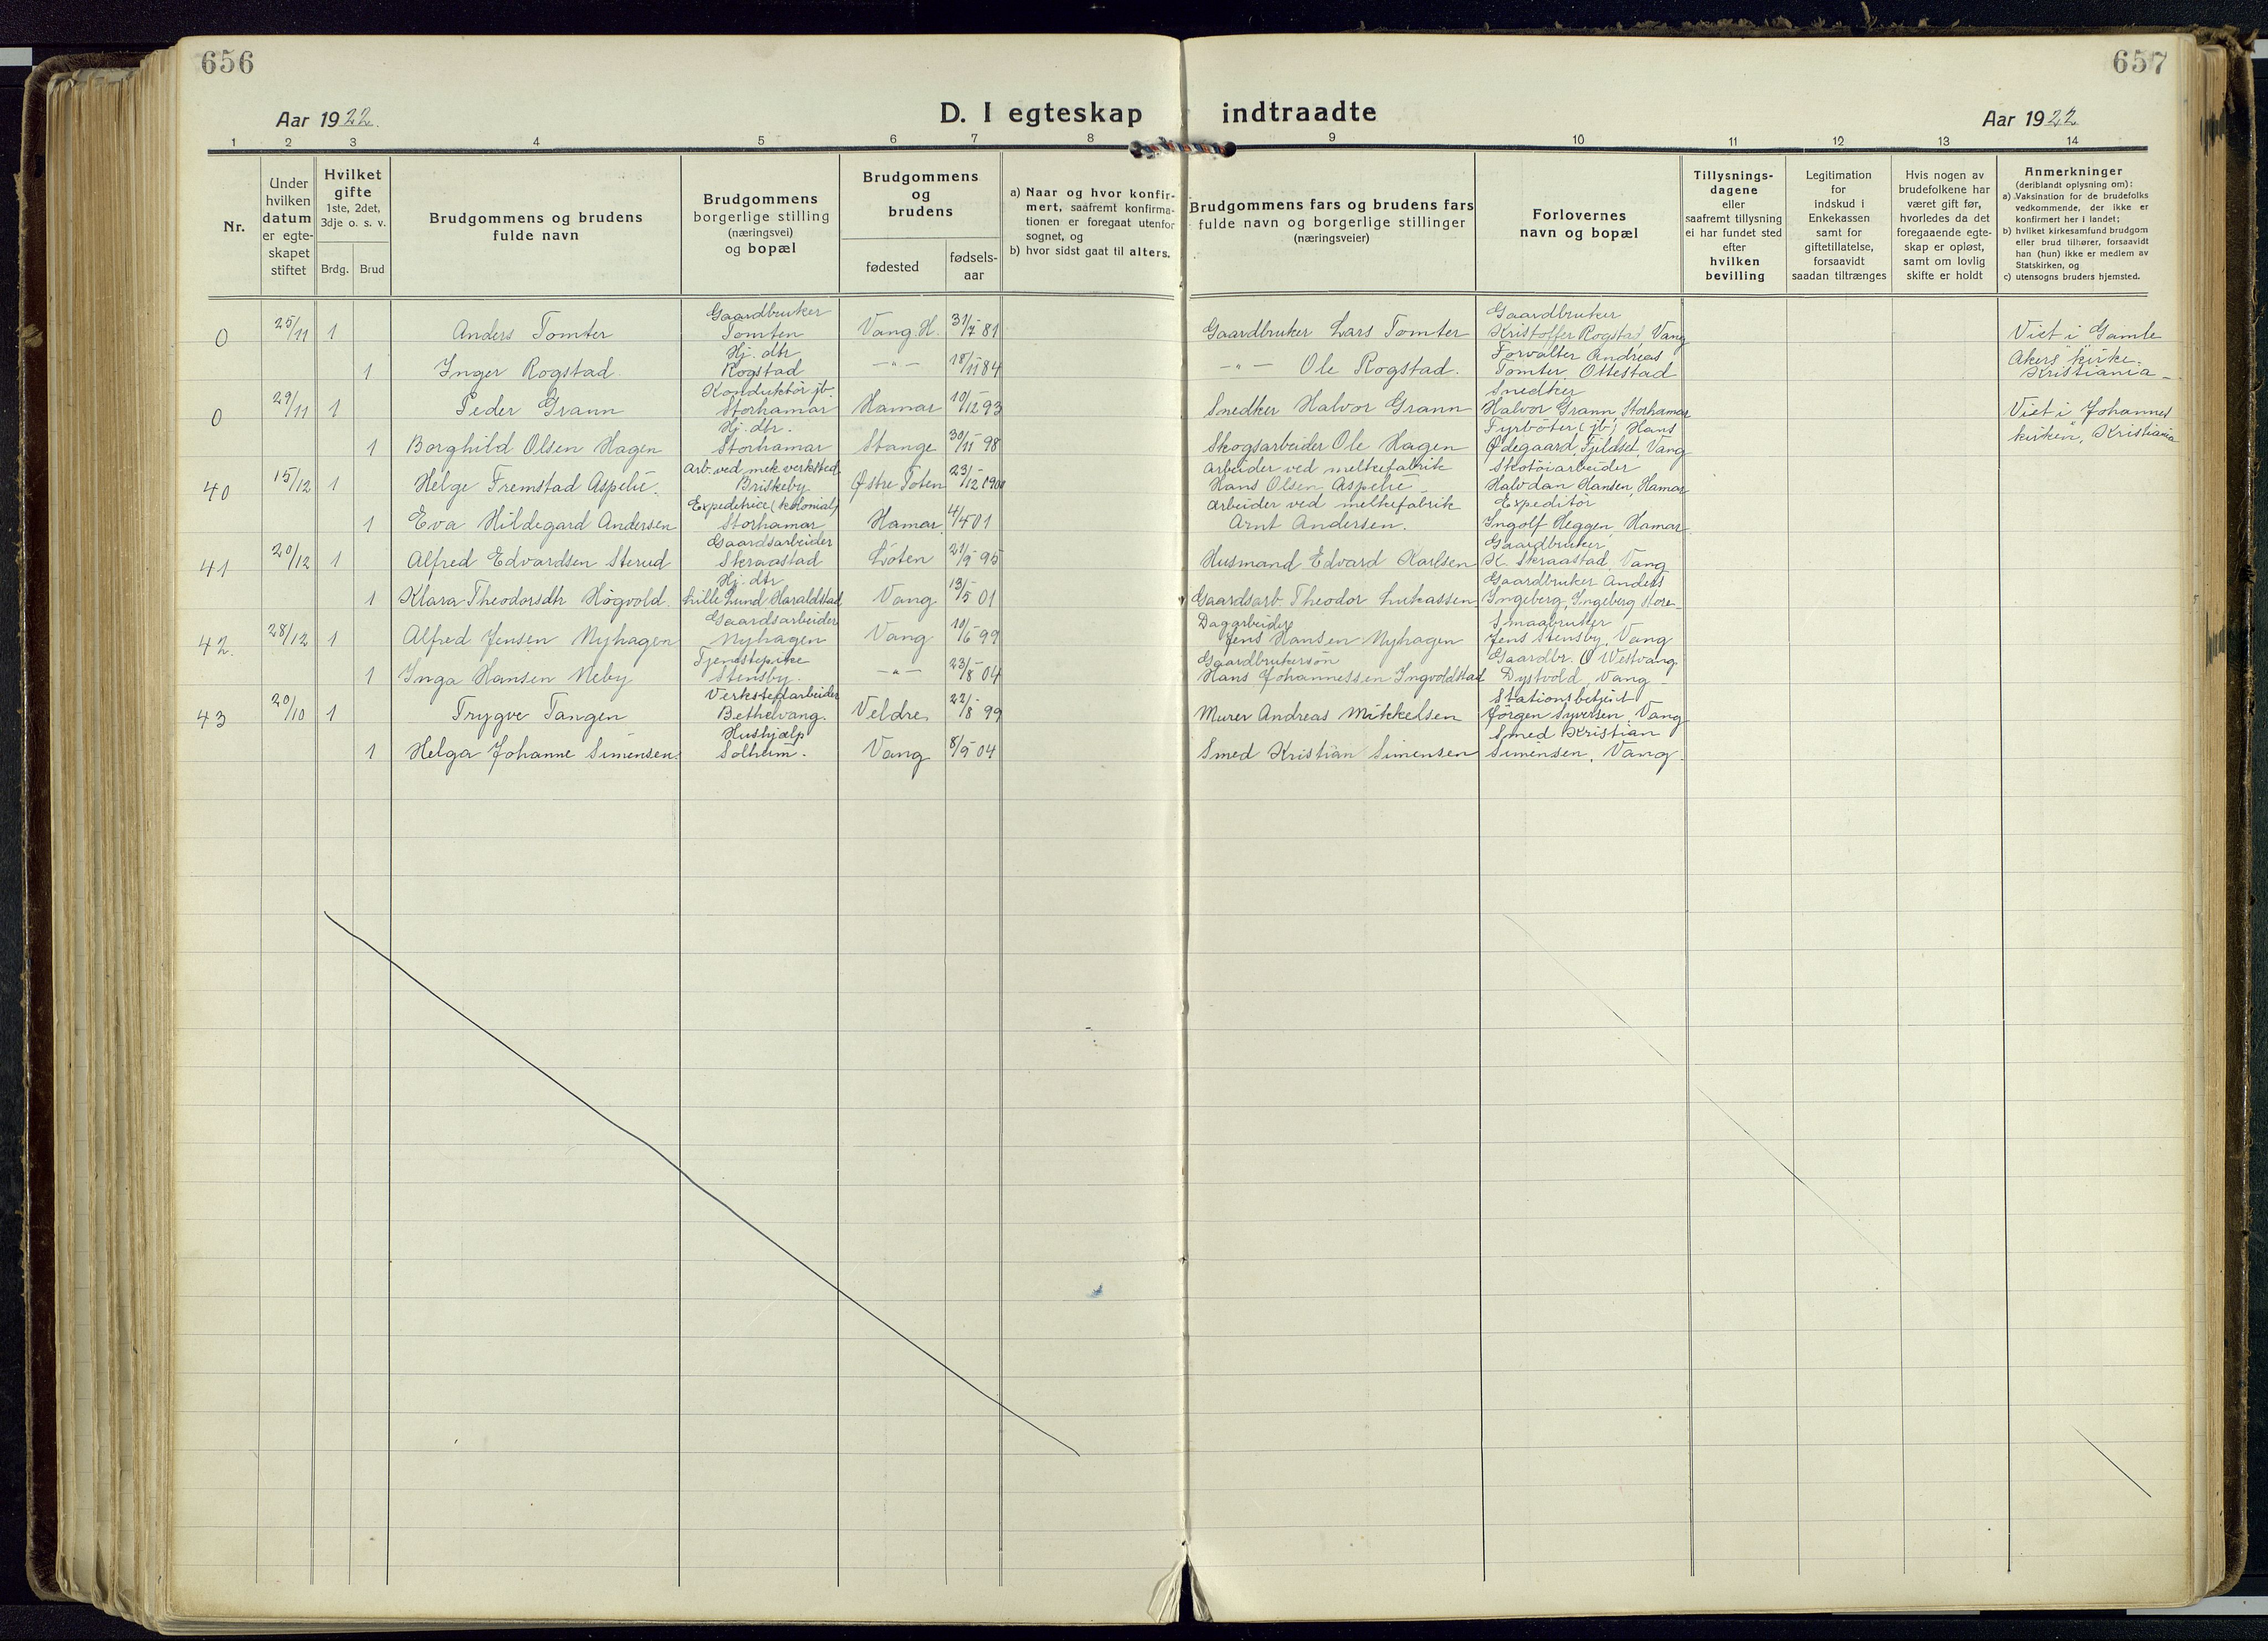 656
657
Aar 1922.
D. I egteskap indtraadte
Aar 1922
1 2 3 4 5 6 7 8 9 10 11 12 13 14
Nr.
Under
hvilken
datum
er egte-
skapet
stiftet
Hvilket
gifte
1ste, 2det,
3dje o. s. v.
Brdg. Brud
Brudgommens og brudens
fulde navn
Brudgommens
borgerlige stilling
(næringsvei)
og bopæl
Brudgommens
og
brudens
fødested
fødsels-
aar
a) Naar og hvor konfir-
mert, saafremt konfirma-
tionen er foregaat utenfor
sognet, og
b) hvor sidst gaat til alters.
Brudgommens fars og brudens fars
fulde navn og borgerlige stillinger
(næringsveier)
Forlovernes
navn og bopæl
Tillysnings-
dagene
eller
saafremt tillysning
ei har fundet sted
efter
hvilken
bevilling
Legitimation
for
indskud i
Enkekassen
samt for
giftetillatelse,
forsaavidt
saadan tiltrænges
Hvis nogen av
brudefolkene har
været gift før,
hvorledes da det
foregaaende egte-
skap er opløst,
samt om lovlig
skifte er holdt
Anmerkninger
(deriblandt oplysning om):
a) Vaksination for de brudefolks
vedkommende, der ikke er
konfirmert her i landet;
b) hvilket kirkesamfund brudgom
eller brud tilhører, forsaavidt
han (hun) ikke er medlem av
Statskirken, og
c) utensogns bruders hjemsted.
Gaardbruker Gaardbruker
0 25/11 1 Anders Tomter Tomten Vang. H. 31/7 81 Gaardbruker Lars Tomter Kristoffer Rogstad, Vang Viet i Gamle
Hj. dtr Forvalter Andreas Akers kirke.
1 Inger Rogstad Rogstad -"- 18/11 84 -"- Ole Rogstad. Tomter Ottestad Kristiania -
Konduktör jb. Snedker
0 29/11 1 Peder Grann Storhamar Hamar 10/12 93 Snedker Halvor Grann Halvor Grann, Storhamar Viet i Johannes
Hj. dtr. Fyrböter (jb) Hans
1 Borghild Olsen Hagen Storhamar Stange 30/11 98 Skogsarbeider Ole Hagen Ödegaard, Fjeldset, Vang kirken, Kristiania
Arb. ved mek. verksted Arbeider ved melkefabrik Skotöiarbeider
40 15/12 1 Helge Fremstad Aspelie. Briskeby Östre Toten 23/12 1900 Hans Olsen Aspelie Halvdan Hansen, Hamar
Expeditrice (kolonial) Arbeider ved melkefabrik Expeditör
1 Eva Hildegard Andersen Storhamar Hamar 4/4 01 Arnt Andersen. Ingolf Heggen, Hamar
Gaardsarbeider Gaardbruker
41 20/12 1 Alfred Edvardsen Sterud Skraastad Löten 21/9 95 Husmand Edvard Karlsen K. Skraastad, Vang
Hj. dtr Gaardbruker Anders
1 Klara Theodorsdtr Högvold. Lille Lund Haraldstad Vang 13/5 01 Gaardsarb. Theodor Lukassen Ingeberg, Ingeberg store-
Gaardsarbeider Dagarbeider Smaabruker
42. 28/12 1 Alfred Jensen Nyhagen Nyhagen Vang 10/6 99 Jens Hansen Nyhagen Jens Stensby, Vang
Tjenestepike Gaardbrukersön Gaardbr. O. Westvang
1 Inga Hansen Neby Stensby. -"- 23/8 04 Hans Johannessen Ingvoldstad Dystvold, Vang
Verkstedarbeider Stationsbetjent
43 20/10 1 Trygve Tangen Bethelvang. Veldre 22/8 99 Murer Andreas Mikkelsen Jörgen Syversen, Vang
Hushjælp Smed Kristian
1 Helga Johanne Simensen. Solheim. Vang 8/9 04 Smed Kristian Simensen Simensen, Vang.